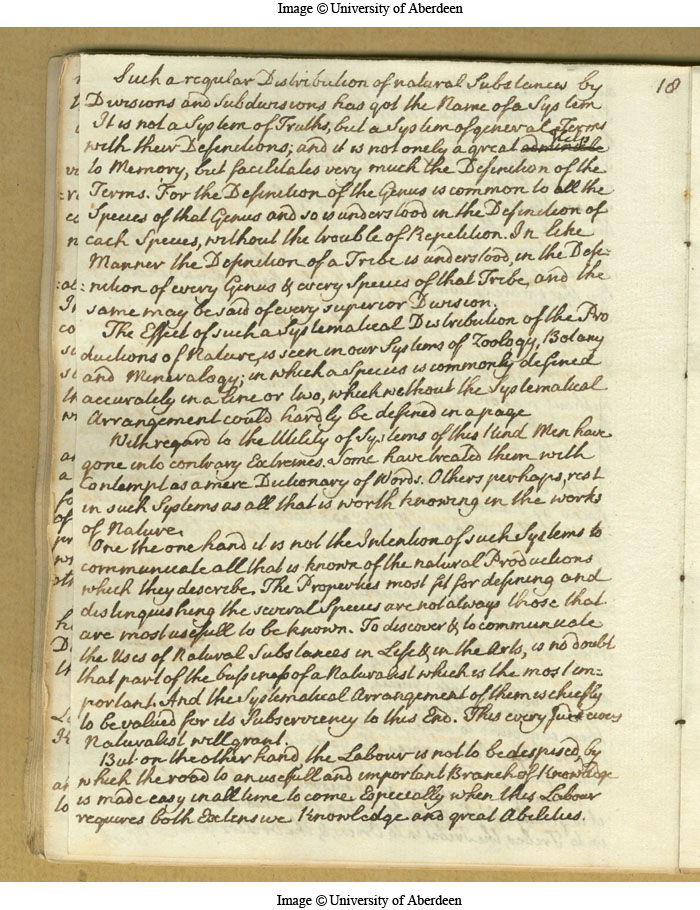 Image © University of Aberdeen
18
Such a regular Distribution of natural Substances by
Divisions and Subdivisions has got the Name of a System
It is not a System of Truths, but a System of general Terms
with their Definitions; and it is not onely a great help
to Memory, but facilitates very much the Definition of the
Terms. For the Definition of the Genus is common to all the
Species of that Genus and so is understood in the Definition of
each Species, without the trouble of Repetition. In like
Manner the Definition of a Tribe is understood, in the Defi-
nition of every Genus & every Species of that Tribe, and the
same may be said of every superior Division.
The Effect of such a Systematical Distribution of the Pro
ductions of Nature, is seen in our Systems of Zoology, Botany
and Mineralogy; in which a Species is commonly defined
accurately in a line or two, which without the Systematical
Arrangement could hardly be defined in a page
With regard to the Utility of Systems of this kind Men have
gone into contrary Extremes. Some have treated them with
Contempt as a mere Dictionary of Words. Others perhaps, rest
in such Systems as all that is worth knowing in the works
of Nature.
One the one hand it is not the Intention of such Systems to
communicate all that is known of the natural Productions
which they describe. The Properties most fit for defining and
distinguishing the several Species are not always those that
are most usefull to be known. To discover & to communicate
the Uses of Natural Substances in Life & in the Arts, is no doubt
that part of the bussiness of a Naturalist which is the most im-
portant. And the Systematical Arrangement of them is chiefly
to be valued for its Subserviency to this End. This every Judicious
Naturalist will grant.
But on the other hand the Labour is not to be despised by
which the road to an usefull and important Branch of Knowledge
is made easy in all time to come Especially when this Labour
requires both Extensive Knowledge and great Abilities.
Image © University of Aberdeen